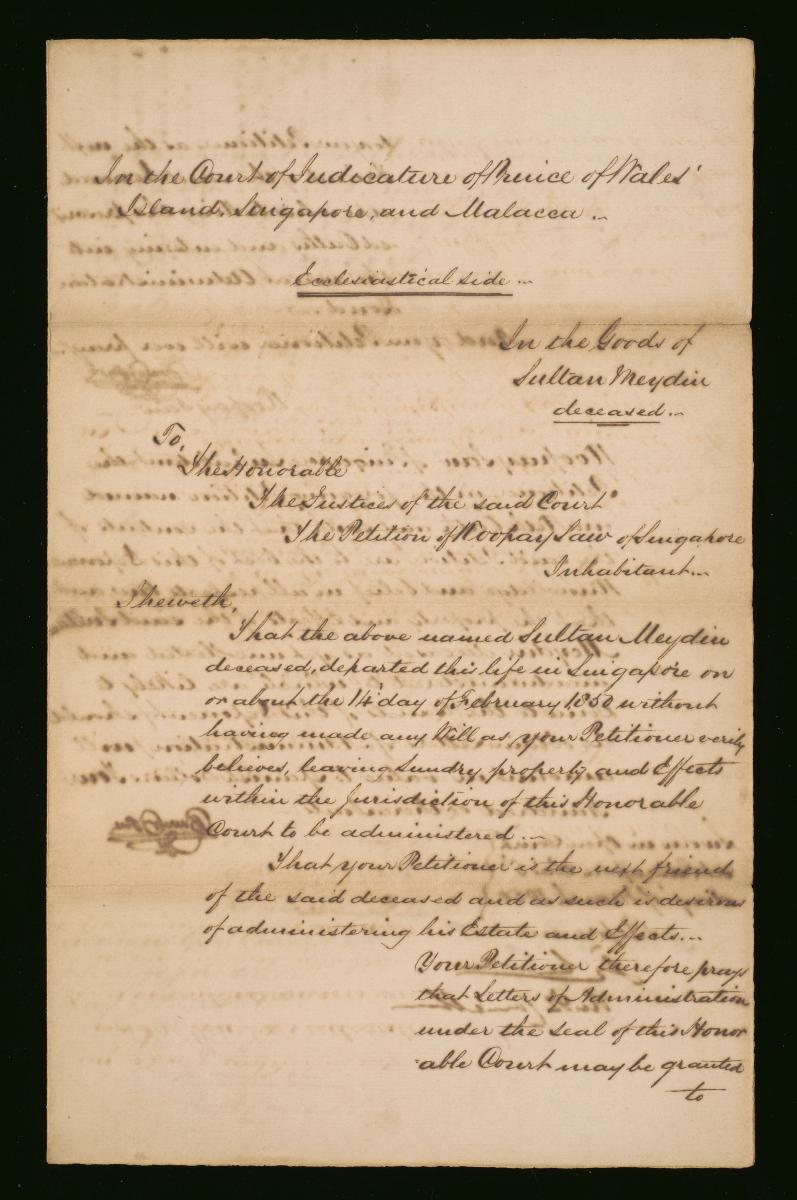 In the Court of Judicature of Prince of Wales'
Island, Singapore, and Malacca ..
Ecclesiastical side ...
In the Goods of
Sultan Meydin
deceased ..
To,
The Honorable
The Justices of the said Court
The Petition of Koopay Saw of Singapore
Inhabitant ...
Sheweth,
That the above named Sultan Meydin
deceased, departed this life in Singapore on
or about the 14th day of February 1850 without
having made any Will as your Petitioner verily
believes, leaving Sundry property and Effects
within the Jurisdiction of this Honorable
Court to be administered ..
That your Petitioner is the next friend
of the said deceased and as such is desirous
of administering his Estate and Effects ...
Your Petitioner therefore prays
that Letters of Administration
under the seal of this Honor
able Court may be granted
to